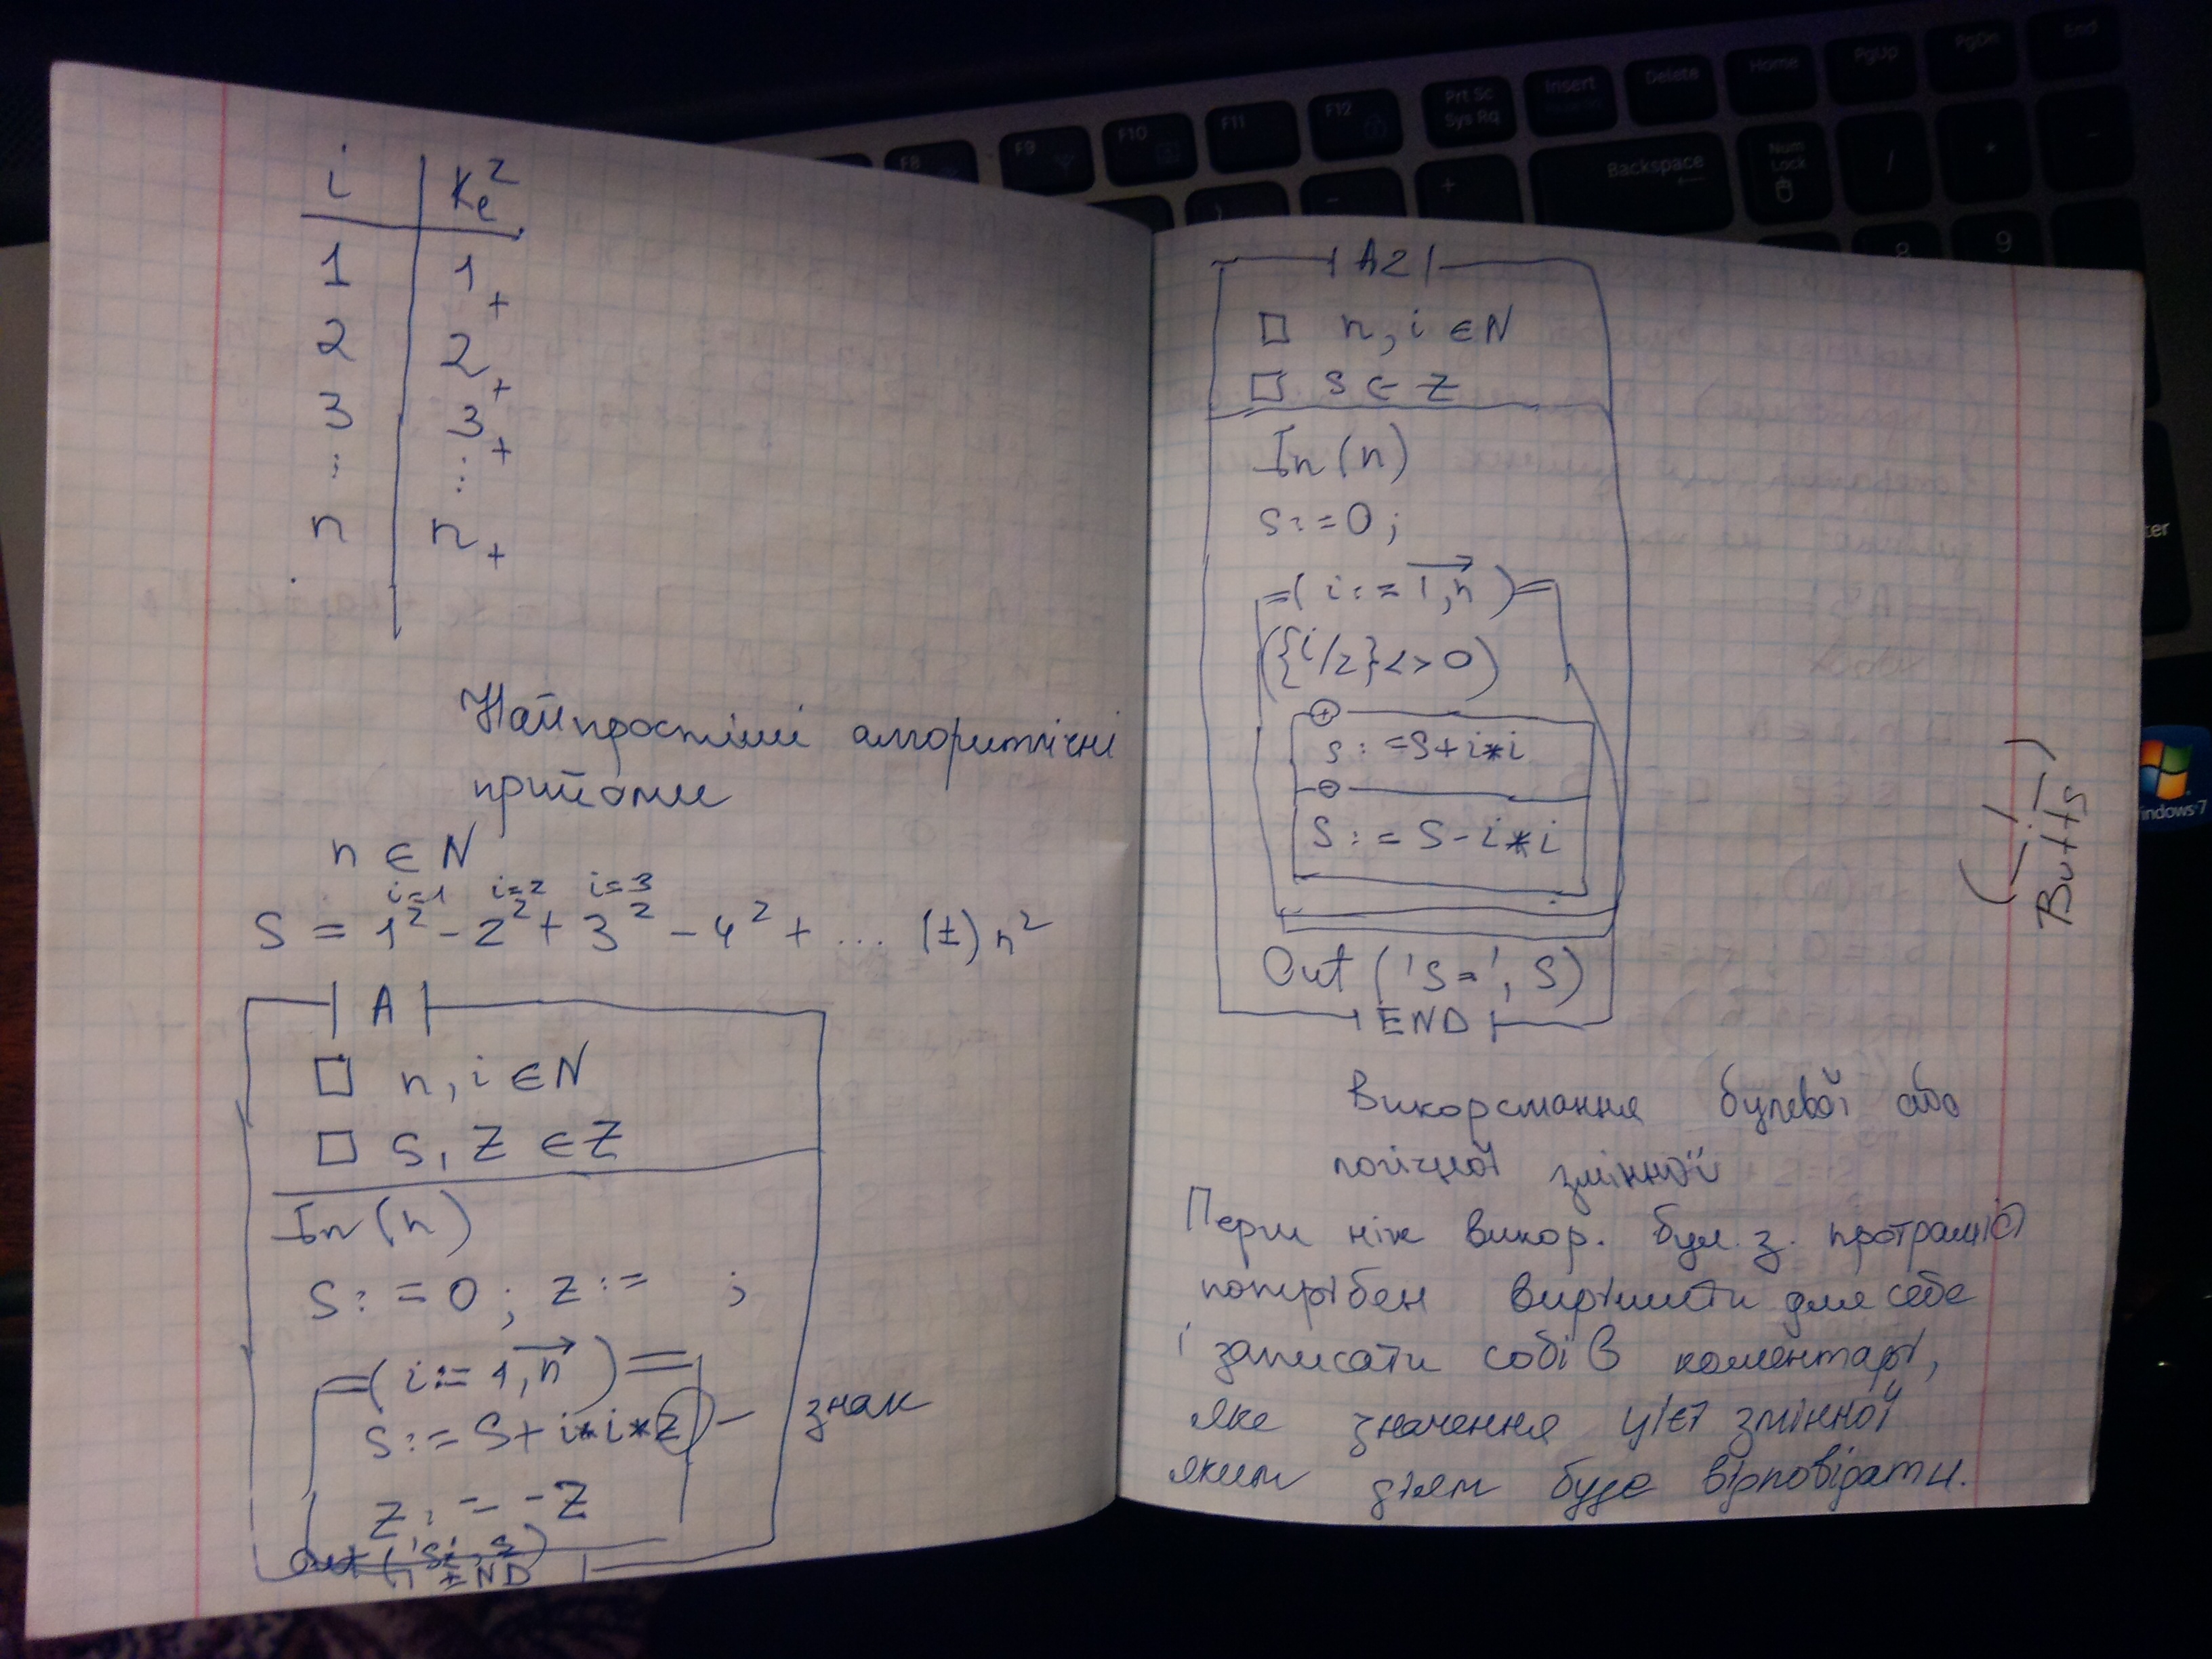 i | Ke²
1 | 1 +
2 | 2 +
3 | 3 +
⋮ | ⋮
n | n +
Найпростіші алгоритмічні
прийоми
n ∈ N
i=1 i=2 i=3
S = 1² - 2² + 3² - 4² + ... (±) n²
A
□ n, i ∈ N
□ S, Z ∈ Z
In (n)
S := 0 ; z := ;
=( i := 1,n )=
S := S + i*i*z — знак
Z := -Z
END
A2
□ n, i ∈ N
□ S ∈ Z
In (n)
S := 0 ;
=( i := 1,n )=
({i/2} <> 0)
+
S := S + i*i
-
S := S - i*i
Out ('S=', S)
END
Викорстання булевої або
логічної змінної
Перш ніж викор. бул. з. програміст
потрібен вирішити для себе
і записати собі в коментарі,
яке значення цієї змінної
яким діям буде відповідати.
Butts
F8 F9 F10 F11 F12 Prt Sc Insert Delete Home PgUp PgDn End
Sys Rq
+ Backspace Num / * -
Lock
9
ter
indows 7